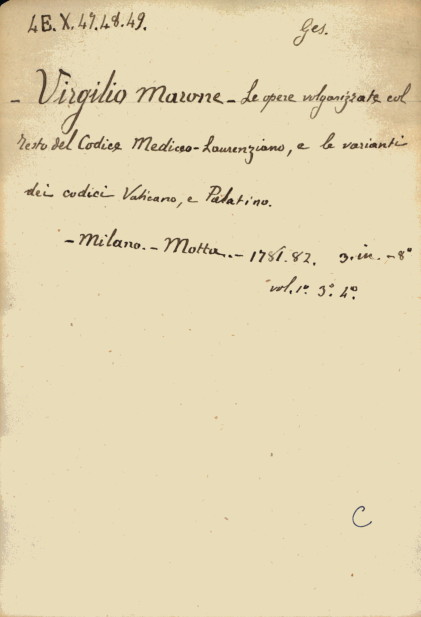 4E.X.47.48.49.
Ges.
- Virgilio Marone - Le opere volgarizzate col
testo del Codice Mediceo-Laurenziano, e le varianti
dei codici Vaticano, e Palatino.
- Milano. - Motta. - 1781.82. 3. in. - 8°
vol. 1° 3° 4°.
C